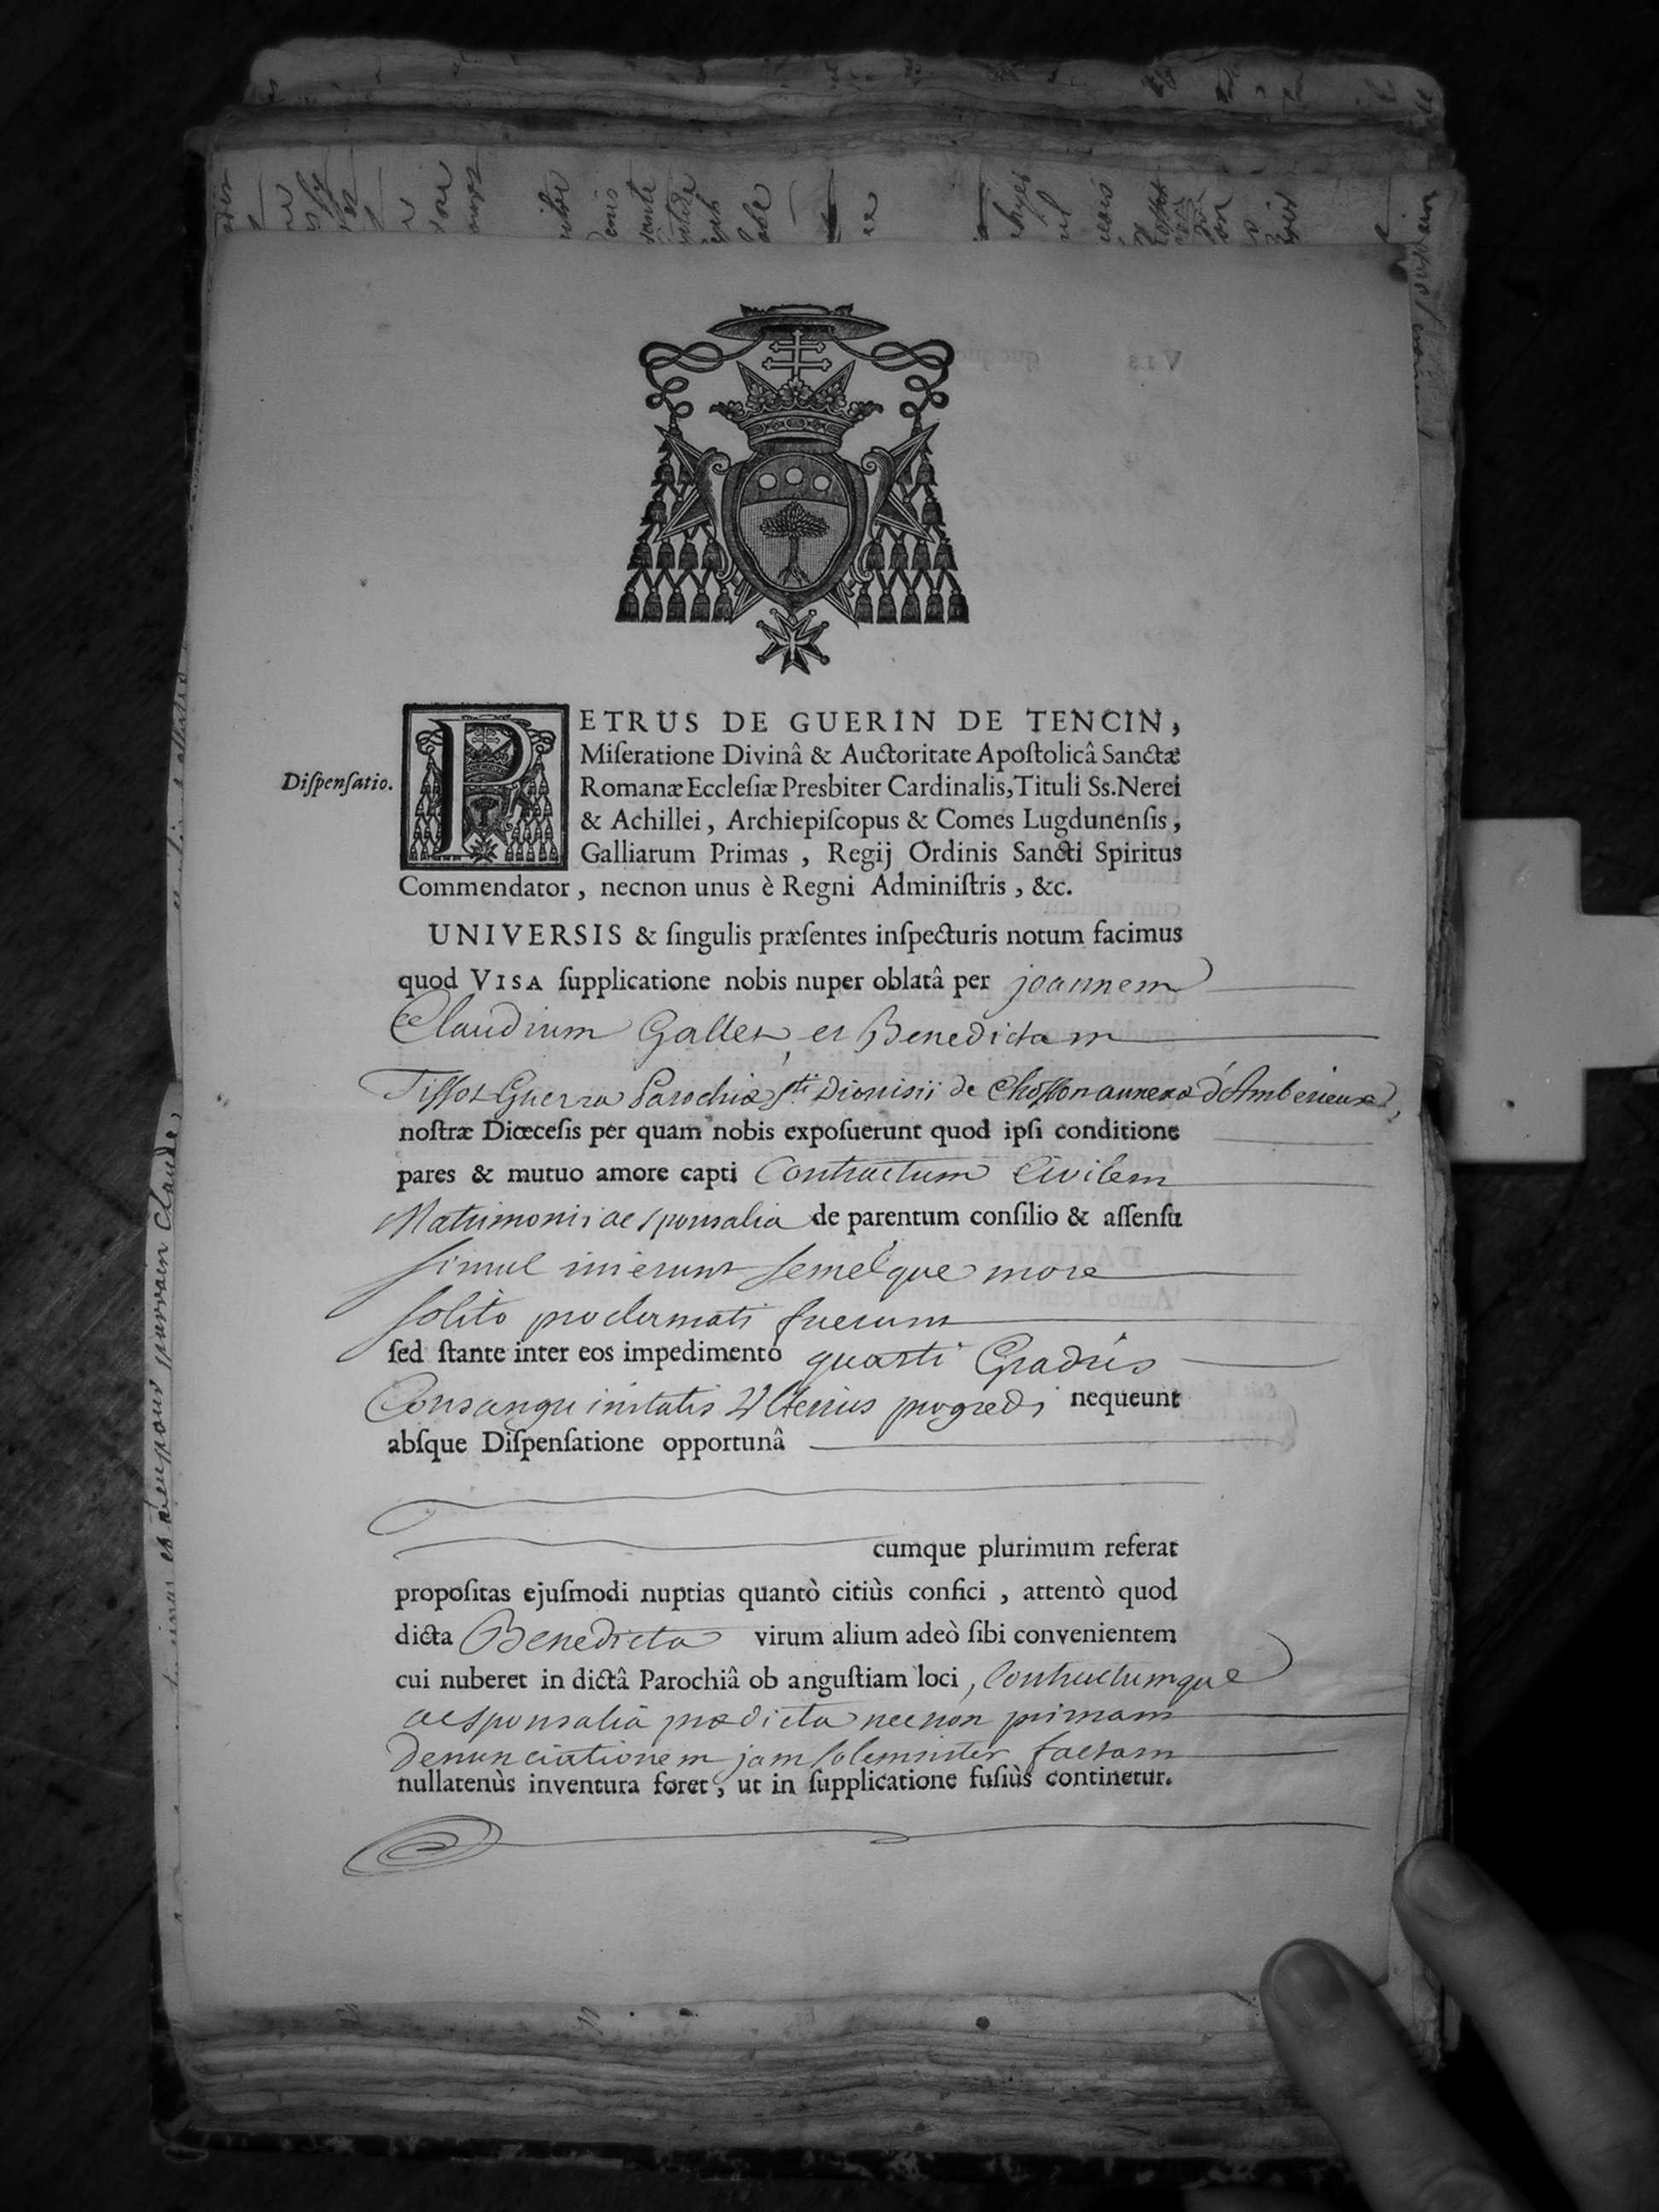 Diſpenſatio.
PETRUS DE GUERIN DE TENCIN,
Miſeratione Divinâ & Auctoritate Apoſtolicâ Sanctæ
Romanæ Eccleſiæ Presbiter Cardinalis, Tituli Ss. Nerei
& Achillei, Archiepiſcopus & Comes Lugdunenſis,
Galliarum Primas, Regij Ordinis Sancti Spiritus
Commendator, necnon unus è Regni Adminiſtris, &c.
UNIVERSIS & ſingulis præſentes inſpecturis notum facimus
quod VISA ſupplicatione nobis nuper oblatâ per joannem
Claudium Gallet, et Benedictam
Tiſſot Guerra Parochiæ Sti Dionisii de Choſſon annexa d'Amberieux,
noſtræ Diœceſis per quam nobis expoſuerunt quod ipſi conditione
pares & mutuo amore capti Contractum Civilem
Matrimonii ac sponsalia de parentum conſilio & aſſenſu
simul inierunt semelque more
solito proclamati fuerunt
ſed ſtante inter eos impedimento quarti Gradûs
Consanguinitatis Ulterius progredi nequeunt
abſque Diſpenſatione opportunâ
cumque plurimum referat
propoſitas ejuſmodi nuptias quantò citiùs confici, attentò quod
dicta Benedicta virum alium adeò ſibi convenientem
cui nuberet in dictâ Parochiâ ob anguſtiam loci, Contractumque
ac sponsalia prædicta necnon primam
denunciationem jam solemniter factam
nullatenùs inventura foret, ut in ſupplicatione fuſiùs continetur.
et a eu pour parrain Claude